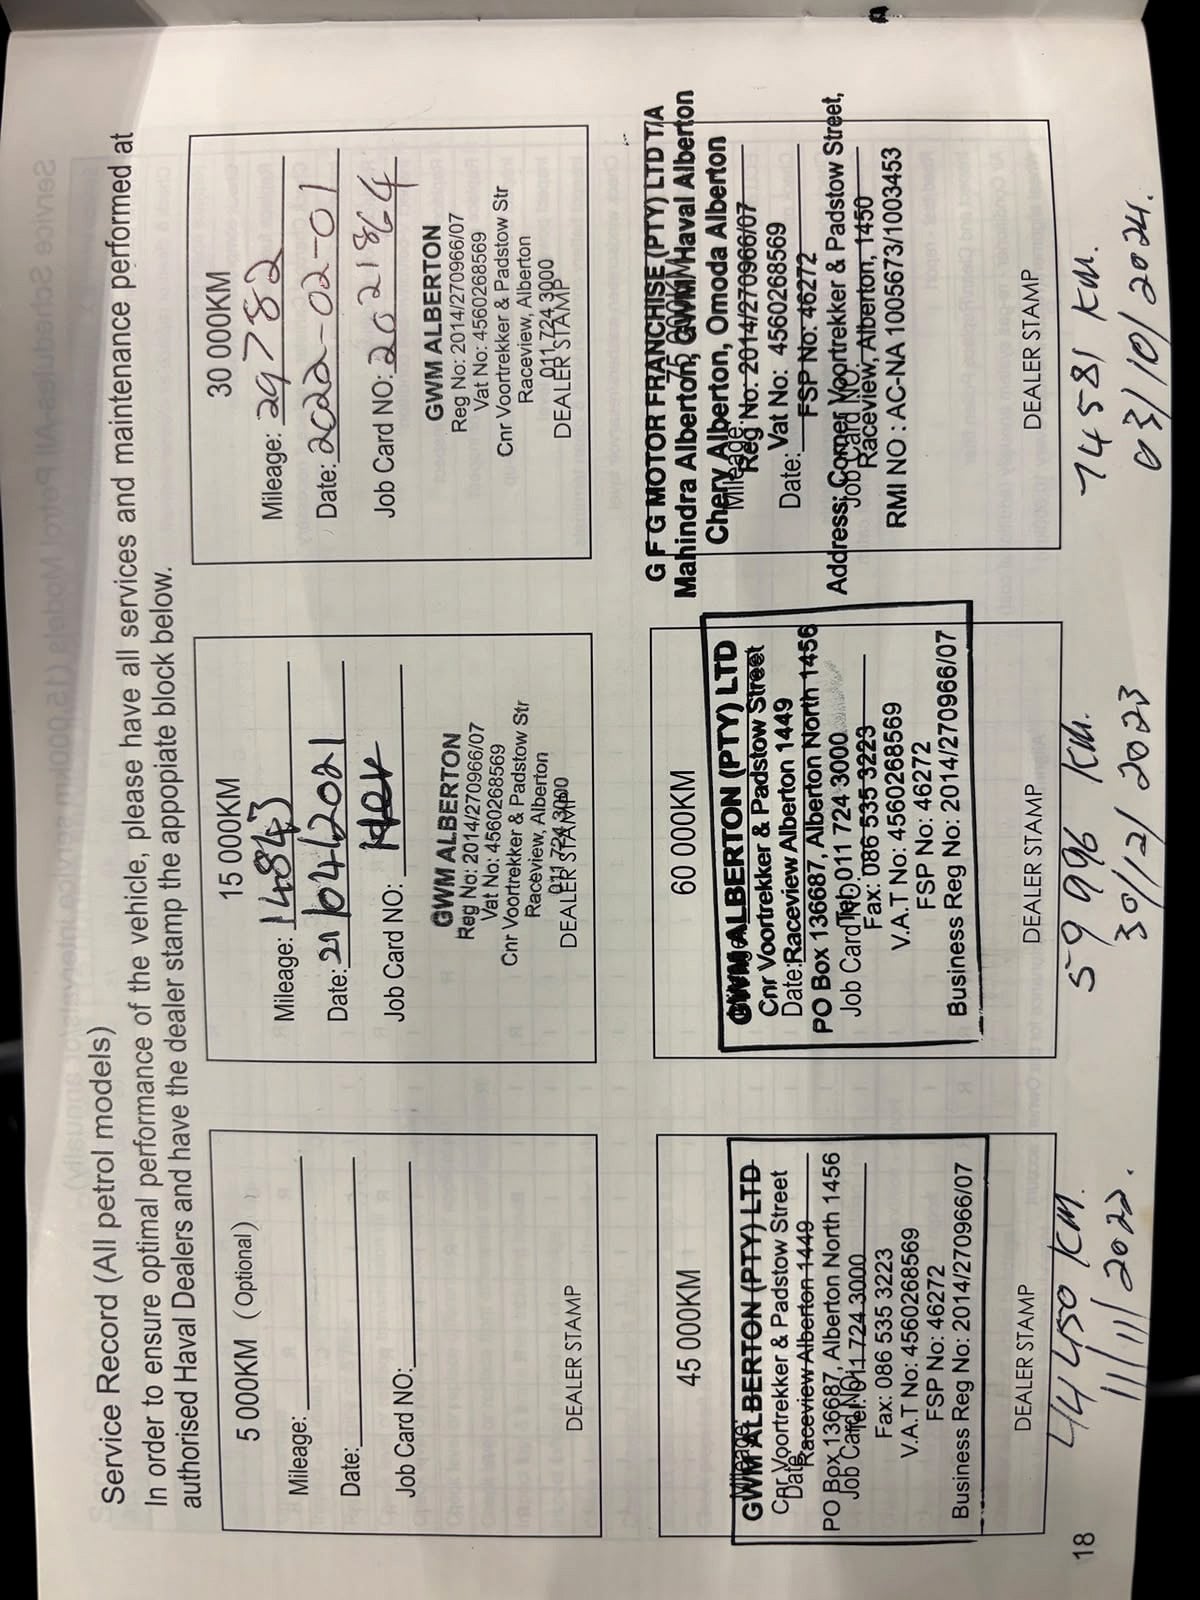 Service Record (All petrol models)
In order to ensure optimal performance of the vehicle, please have all services and maintenance performed at
authorised Haval Dealers and have the dealer stamp the appopiate block below.
5 000KM (Optional)
Mileage:
Date:
Job Card NO:
DEALER STAMP
15 000KM
Mileage: 14843
Date: 21/04/2021
Job Card NO:
GWM ALBERTON
Reg No: 2014/270966/07
Vat No: 4560268569
Cnr Voortrekker & Padstow Str
Raceview, Alberton
011 724 3000
DEALER STAMP
30 000KM
Mileage: 29782
Date: 2022-02-01
Job Card NO: 202184
GWM ALBERTON
Reg No: 2014/270966/07
Vat No: 4560268569
Cnr Voortrekker & Padstow Str
Raceview, Alberton
011 724 3000
DEALER STAMP
45 000KM
Mileage:
GWM ALBERTON (PTY) LTD
Cnr Voortrekker & Padstow Street
Date:
Raceview Alberton 1449
PO Box 136687, Alberton North 1456
Job Card NO:
Tel: 011 724 3000
Fax: 086 535 3223
V.A.T No: 4560268569
FSP No: 46272
Business Reg No: 2014/270966/07
DEALER STAMP
44450 KM.
11/11/2022.
60 000KM
GWM ALBERTON (PTY) LTD
Cnr Voortrekker & Padstow Street
Date: Raceview Alberton 1449
PO Box 136687, Alberton North 1456
Job Card NO:
Tel: 011 724 3000
Fax: 086 535 3223
V.A.T No: 4560268569
FSP No: 46272
Business Reg No: 2014/270966/07
DEALER STAMP
59996 KM.
30/12/2023
G F G MOTOR FRANCHISE (PTY) LTD T/A
Mahindra Alberton, GWM/Haval Alberton
Chery Alberton, Omoda Alberton
Mileage:
Reg No: 2014/270966/07
Vat No: 4560268569
Date:
FSP No: 46272
Address: Corner Voortrekker & Padstow Street,
Job Card NO:
Raceview, Alberton, 1450
RMI NO : AC-NA 1005673/1003453
DEALER STAMP
74581 KM.
03/10/2024.
18